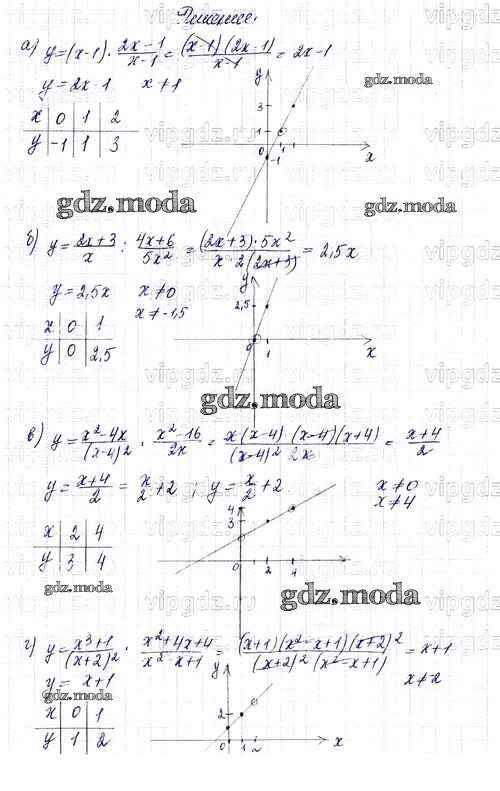 Решение.
а) y=(x-1)·\frac{2x-1}{x-1}=\frac{(x-1)(2x-1)}{x-1}=2x-1
y=2x-1 x≠1
gdz.moda
x 0 1 2
y -1 1 3
y
3
1
0 1
-1
x
gdz.moda
gdz.moda
б) y=\frac{2x+3}{x}:\frac{4x+6}{5x²}=\frac{(2x+3)·5x²}{x·2(2x+3)}=2,5x
y=2,5x x≠0
x≠-1,5
x 0 1
y 0 2,5
y
2,5
0 1
x
gdz.moda
в) y=\frac{x²-4x}{(x-4)²}·\frac{x²-16}{2x}=\frac{x(x-4)·(x-4)(x+4)}{(x-4)² 2x}=\frac{x+4}{2}
y=\frac{x+4}{2}=\frac{x}{2}+2; y=\frac{x}{2}+2. x≠0
x≠4
x 2 4
y 3 4
4
3
0 2 4
gdz.moda
gdz.moda
г) y=\frac{x³+1}{(x+2)²}·\frac{x²+4x+4}{x²-x+1}=\frac{(x+1)(x²-x+1)(x+2)²}{(x+2)²(x²-x+1)}=x+1
y=x+1 x≠-2
gdz.moda
x 0 1
y 1 2
y
2
0 1 2
x
vipgdz.ru